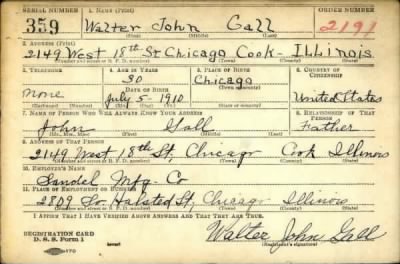 SERIAL NUMBER 1. NAME (Print) ORDER NUMBER
359 Walter John Gall 2191
(First) (Middle) (Last)
2. ADDRESS (Print)
2149 West 18th St Chicago Cook - Illinois
(Number and street or R. F. D. number) (Town) (County) (State)
3. TELEPHONE 4. AGE IN YEARS 5. PLACE OF BIRTH 6. COUNTRY OF CITIZENSHIP
30 Chicago
none DATE OF BIRTH (Town or county) United States
July 5 - 1910
(Exchange) (Number) (Mo.) (Day) (Yr.) (State or country)
7. NAME OF PERSON WHO WILL ALWAYS KNOW YOUR ADDRESS 8. RELATIONSHIP OF THAT PERSON
John Gall Father
(Mr., Mrs., Miss) (First) (Middle) (Last)
9. ADDRESS OF THAT PERSON
2149 West 18th St, Chicago Cook Illinois
(Number and street or R. F. D. number) (Town) (County) (State)
10. EMPLOYER'S NAME
Sandel Mfg. Co
11. PLACE OF EMPLOYMENT OR BUSINESS
2809 So. Halsted St, Chicago Illinois
(Number and street or R. F. D. number) (Town) (County) (State)
I AFFIRM THAT I HAVE VERIFIED ABOVE ANSWERS AND THAT THEY ARE TRUE.
REGISTRATION CARD
D. S. S. Form 1 Walter John Gall
(Registrant's signature)